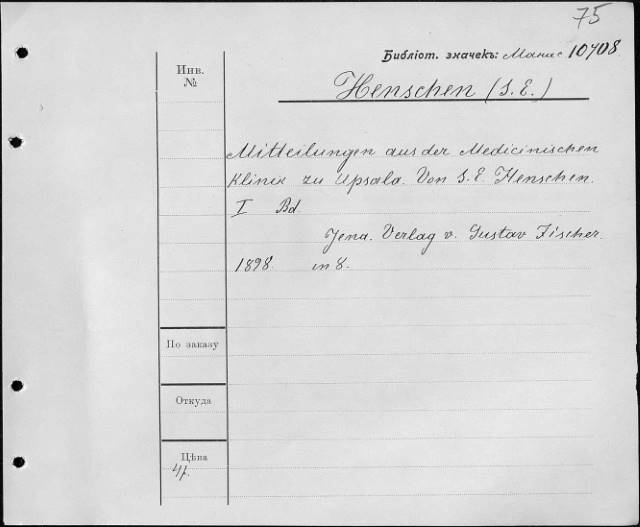 75
Библіот. значекъ: 10708
Инв.
№
Henschen (S. E.)
Mitteilungen aus der Medicinischen
Klinik zu Upsala. Von S. E. Henschen.
I Bd.
Jena. Verlag v. Gustav Fischer.
1898. in 8.
По заказу
Откуда
Цѣна